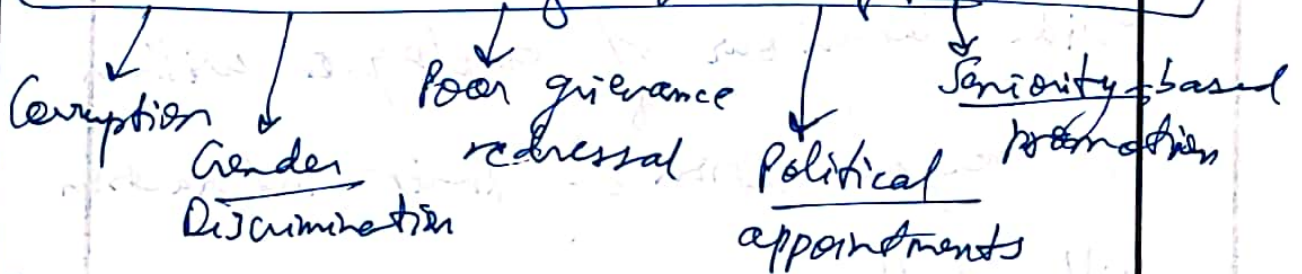 Corruption
Gender
Discrimination
Poor grievance
redressal
Political
appointments
Seniority-based
promotion